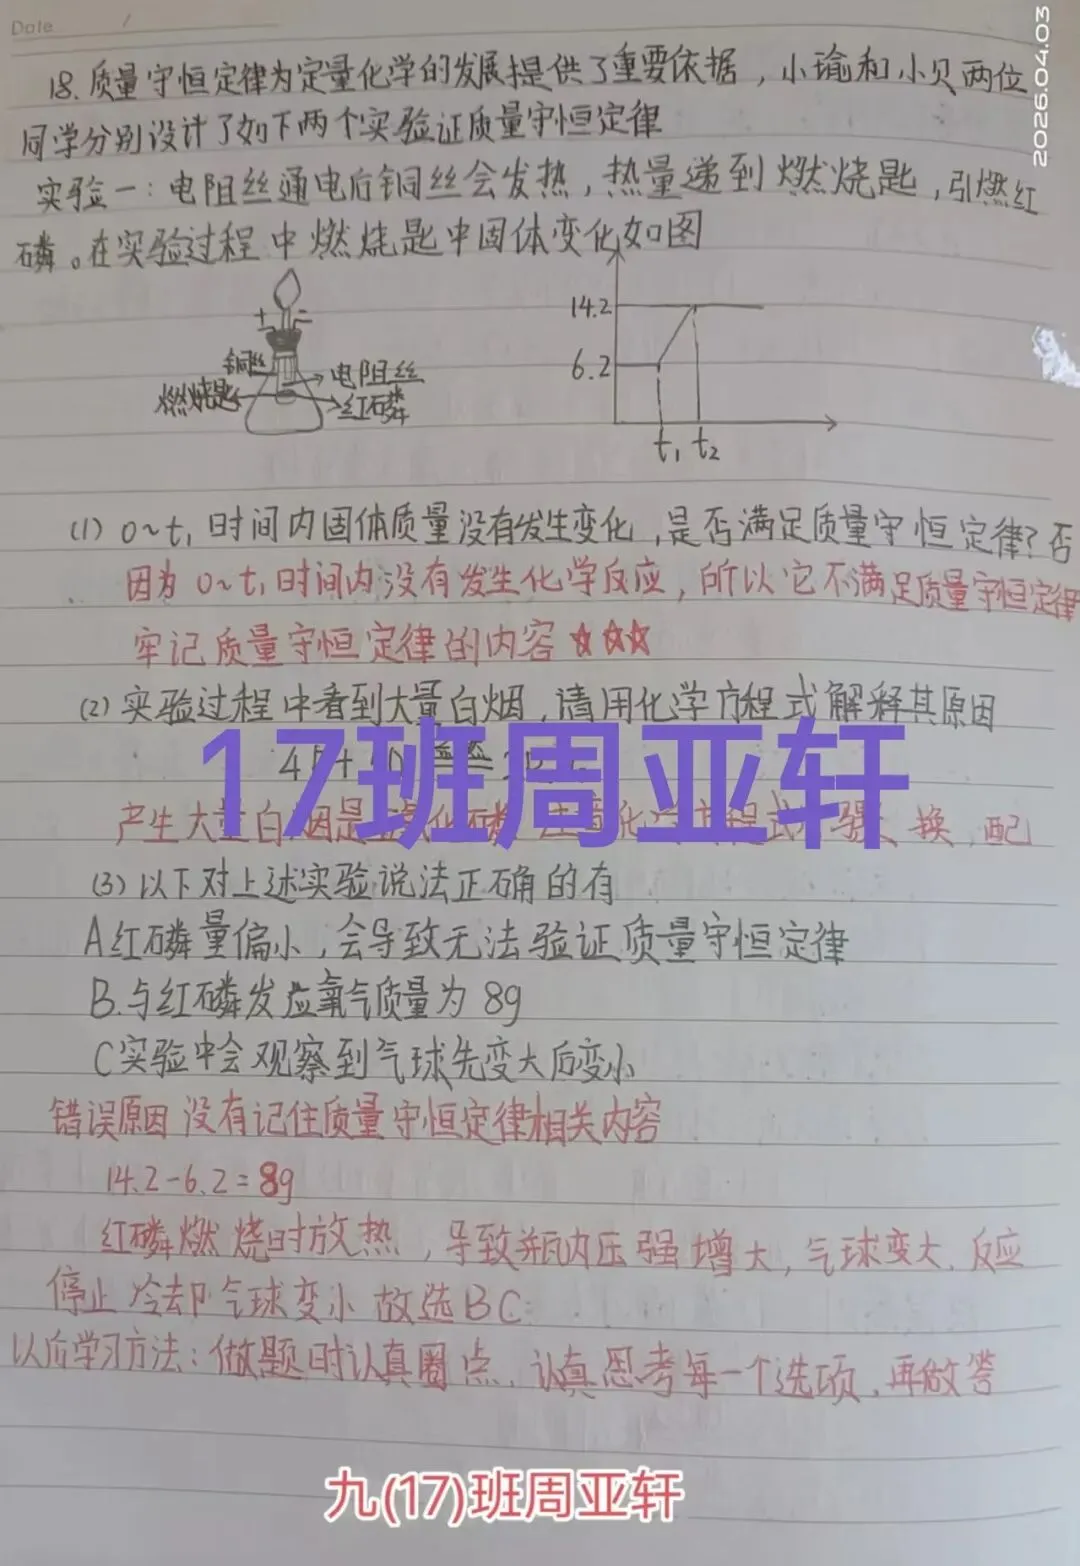 Date /
2026.04.03
18.质量守恒定律为定量化学的发展提供了重要依据，小瑜和小贝两位
同学分别设计了如下两个实验证质量守恒定律
实验一：电阻丝通电后铜丝会发热，热量递到燃烧匙，引燃红
磷。在实验过程中燃烧匙中固体变化如图
+ -
铜丝
电阻丝
燃烧匙
红磷
14.2
6.2
t₁ t₂
(1) 0~t₁时间内固体质量没有发生变化，是否满足质量守恒定律？否
因为0~t₁时间内没有发生化学反应，所以它不满足质量守恒定律
牢记质量守恒定律的内容☆☆☆
(2)实验过程中看到大量白烟，请用化学方程式解释其原因
4P+
17班周亚轩
产生大量白烟是
换，配
(3)以下对上述实验说法正确的有
A红磷量偏小，会导致无法验证质量守恒定律
B.与红磷发应氧气质量为8g
C实验中会观察到气球先变大后变小
错误原因 没有记住质量守恒定律相关内容
14.2-6.2=8g
红磷燃烧时放热，导致瓶内压强增大，气球变大．反应
停止 冷却 气球变小 故选BC
以后学习方法：做题时认真圈点，认真思考每一个选项，再做答
九(17)班周亚轩